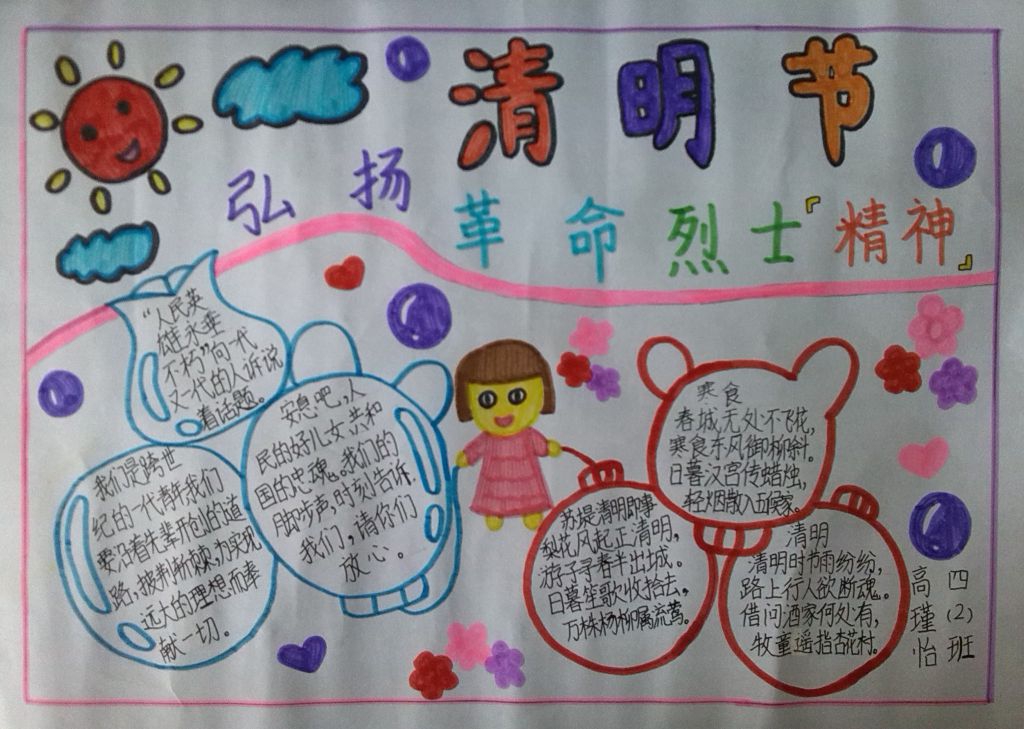 清明节
弘扬
革命烈士『精神』
“人民英
雄永垂
不朽”向一代
又一代的人诉说
着话题。
安息吧,人
民的好儿女共和
国的忠魂。我们的
脚步声,时刻告诉
我们,请你们
放心。
我们是跨世
纪的一代青年我们
要沿着先辈开创的道
路,披荆斩棘,为实现
远大的理想而奉
献一切。
寒食
春城无处不飞花,
寒食东风御柳斜。
日暮汉宫传蜡烛,
轻烟散入五侯家。
苏堤清明即事
梨花风起正清明,
游子寻春半出城。
日暮笙歌收拾去,
万株杨柳属流莺。
清明
清明时节雨纷纷,
路上行人欲断魂。
借问酒家何处有,
牧童遥指杏花村。
四(2)班
高瑾怡